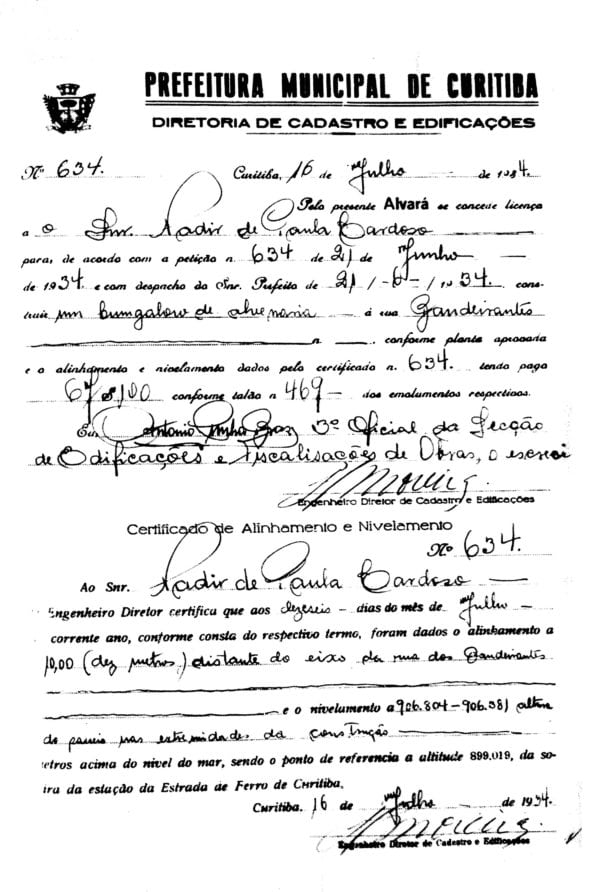 PREFEITURA MUNICIPAL DE CURITIBA
DIRETORIA DE CADASTRO E EDIFICAÇÕES
Nº 634. Curitiba, 16 de Julho de 1934.
Pelo presente Alvará se concede licença
a o Snr. Nadir de Paula Cardoso
para, de acordo com a petição n. 634 de 21 de Junho
de 1934 e com despacho do Snr. Prefeito de 21/-6-/1934. cons-
truir um bungalow de alvenaria á rua Bandeirantes
n. conforme planta aprovada
e o alinhamento e nivelamento dados pelo certificado n. 634. tendo pago
67$100 conforme talão n. 469- dos emolumentos respectivos.
Eu, Antonio 3º Oficial da Secção
de Edificações e Fiscalisações de Obras, o escrevi
Engenheiro Diretor de Cadastro e Edificações
Certificado de Alinhamento e Nivelamento
Nº 634.
Ao Snr. Nadir de Paula Cardoso
Engenheiro Diretor certifica que aos dezeseis - dias do mês de Julho -
corrente ano, conforme consta do respectivo termo, foram dados o alinhamento a
10,00 (dez metros) distante do eixo da rua dos Bandeirantes
e o nivelamento a 906.804-906.381 altura
do passeio nas extremidades da construção
etros acima do nivel do mar, sendo o ponto de referencia a altitude 899,019, da so-
ira da estação da Estrada de Ferro de Curitiba.
Curitiba. 16 de Julho - de 1934.
Engenheiro Diretor de Cadastro e Edificações